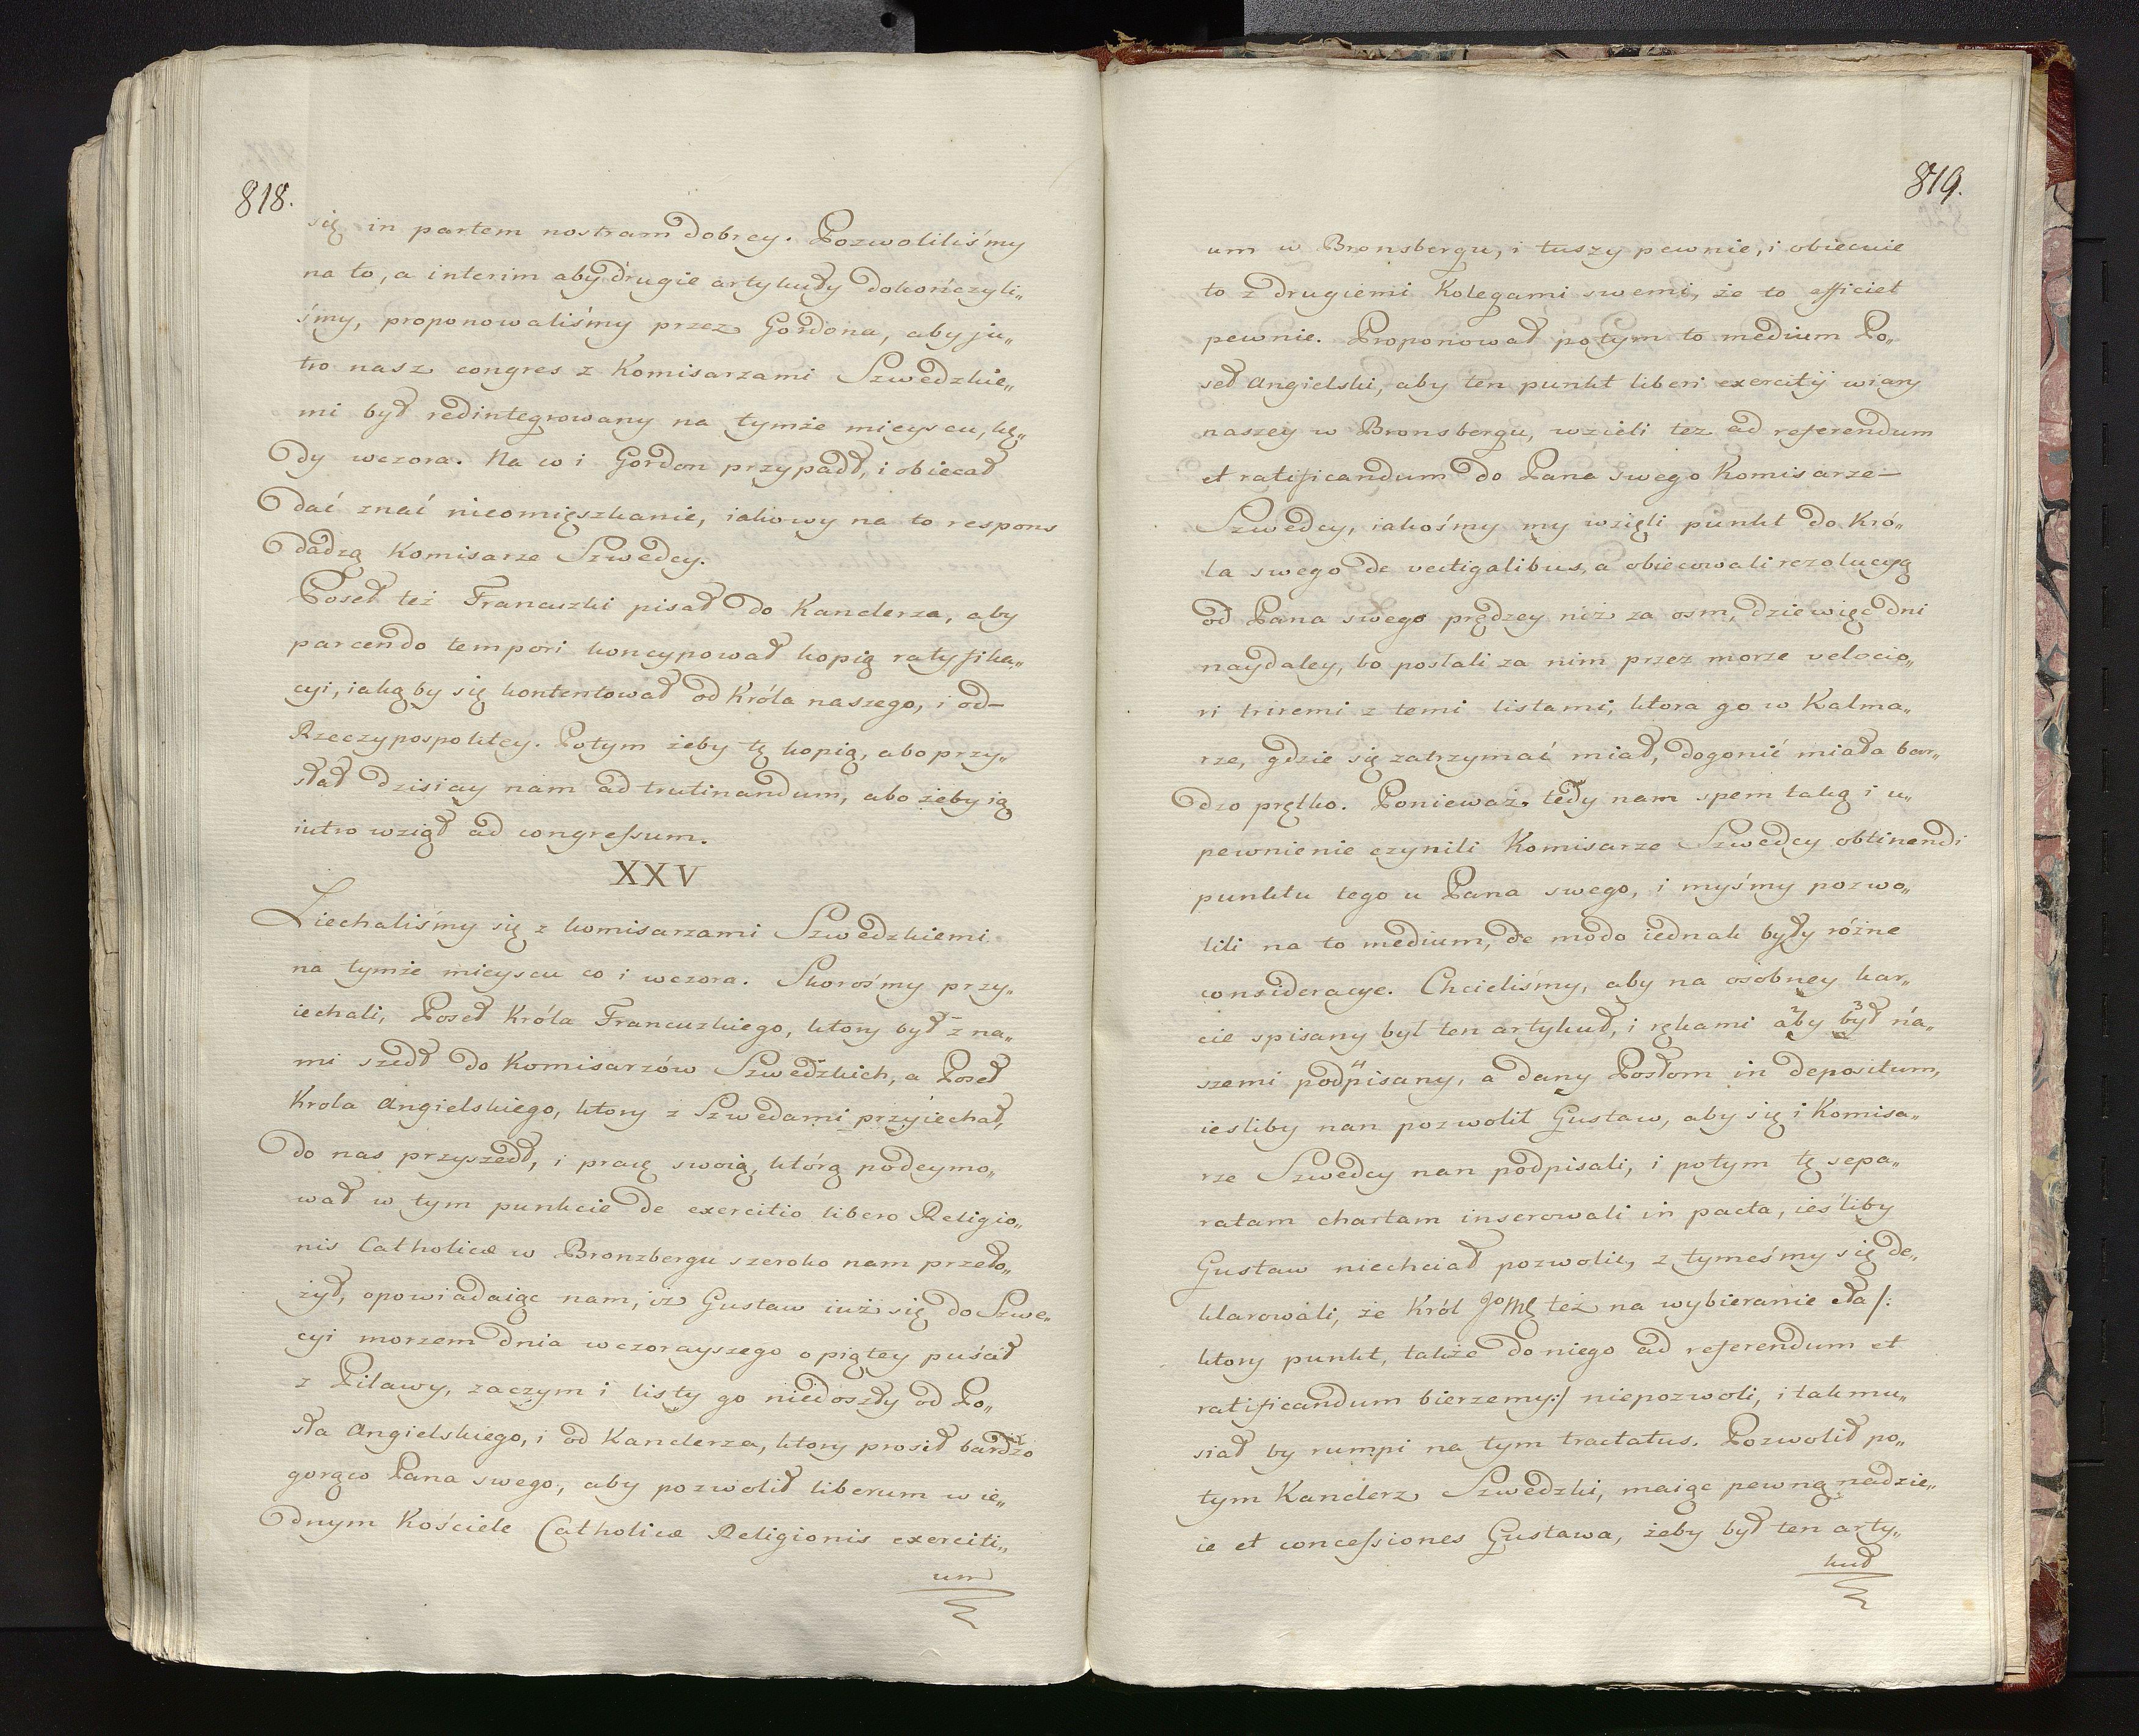 818.
się in partem nostram dobrey. Pozwoliliśmy
na to, a interim aby drugie artykuły dokończyli„
śmy, proponowaliśmy przez Gordona, aby ju„
tro nasz congres z Komisarzami Szwedzkie„
mi był redintegrowany na tymże mieyscu, kę„
dy wczora. Na co i Gordon przypadł, i obiecał
dać znać nieomięszkanie, iakowy na to respons
dadzą Komisarze Szwedcy.
Poseł też Francuzki pisał do Kanclerza, aby
parcendo tempori koncypował kopią ratyfika„
cyi, iaką by się kontentował od Króla naszego, i od—
Rzeczypospolitey. Potym żeby tę kopią, abo przy„
słał dzisiay nam ad trutinandum, abo żeby ią
iutro wziął ad congreſsum.
XXV
Ziechaliśmy się z komisarzami Szwedzkiemi
na tymże mieyscu co i wczora. Skorośmy przy„
iechali, Poseł Króla Francuzkiego, ktory był z na„
mi szedł do Komisarzów Szwedzkich, a Poseł
Krola Angielskiego, ktory z Szwedami przyiechał,
do nas przyszedł, i pracę swoią, którą podeymo„
wał w tym punkcie de exercitio libero Religio„
nis Catholicæ w Bronzbergu szeroko nam przeło„
żył, opowiadaiąc nam, iż Gustaw iuż się do Szwe„
cyi morzem dnia wczorayszego o piątey puścił
z Pilawy, zaczym i listy go niedoszły od Po„
sła Angielskiego, i od Kanclerza, ktory prosił bardzo
gorąco Pana swego, aby pozwolił liberum w ie„
dnym Kościele Catholicæ Religionis exerciti„
um
819.
um w Bronsbergu, i tuszy pewnie, i obiecuie
to z drugiemi Kolegami swemi, że to efficiet
pewnie. Proponował potym to medium Po„
seł Angielski, aby ten punkt liberi exercitij wiary
naszey w Bronsbergu, wzieli też ad referendum
et ratificandum do Pana swego Komisarze—
Szwedcy, iakośmy my wzięli punkt do Kró„
la swego de vectigalibus, a obiecowali rezolucyą
od Pana swego prędzey niż za osm, dziewięć dni
naydaley, bo posłali za nim przez morze velocio„
ri triremi z temi listami, ktora go w Kalma„
rze, gdzie się zatrzymać miał, dogonić miała bar„
dzo prętko. Ponieważ tedy nam spem taką i u„
pewnienie czynili Komisarze Szwedcy obtinendi
punktu tego u Pana swego, i myśmy pozwo„
lili na to medium, de modo iednak były różne
consideracye. Chcieliśmy, aby na osobney kar„
cie spisany był ten artykuł, i rękami aby był na„
szemi podpisany, a dany Posłom in depositum,
iesliby nan pozwolił Gustaw, aby się i Komisa„
rze Szwedcy nan podpisali, i potym tę sepa„
ratam chartam inserowali in pacta, ieśliby
Gustaw niechciał pozwolić, z tymeśmy się de„
klarowali, że Król JoMę też na wybieranie cła /:
ktory punkt, także do niego ad referendum et
ratificandum bierzemy:/ niepozwoli, i tak mu„
siał by rumpi na tym tractatus. Pozwolił po„
tym Kanclerz Szwedzki, maiąc pewną nadzie„
ie et conceſsiones Gustawa, żeby był ten arty„
kuł